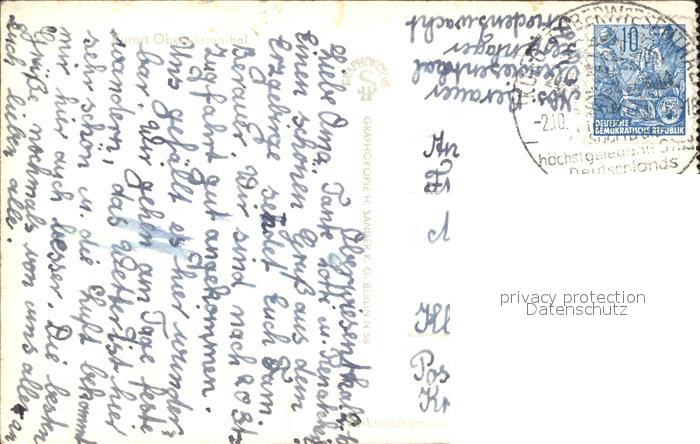 Kurort Oberwiesenthal
Oberwiesenthal, d.
Liebe Oma, Tante
einen schönen Gruß aus dem
Erzgebirge sendet Euch Fam.
Berauer. Wir sind nach 20 Std.
Zugfahrt gut angekommen.
Uns gefällt es hier wunder-
bar. Wir gehen am Tage feste
wandern, das Wetter ist hier
sehr schön u. die Luft bekommt
mir hier auch besser. Die besten
Grüße nochmals von uns allen an
Euch lieben alle.
GRAPHOKOPIE H. SANDER K. G. BERLIN N 58
Abs. Berauer
Oberwiesenthal
Friedenswacht
-2.10.
höchstgelegene Stadt
Deutschlands
10
5
DEUTSCHE
DEMOKRATISCHE REPUBLIK
An
Kl
Pos
Kr
privacy protection
Datenschutz